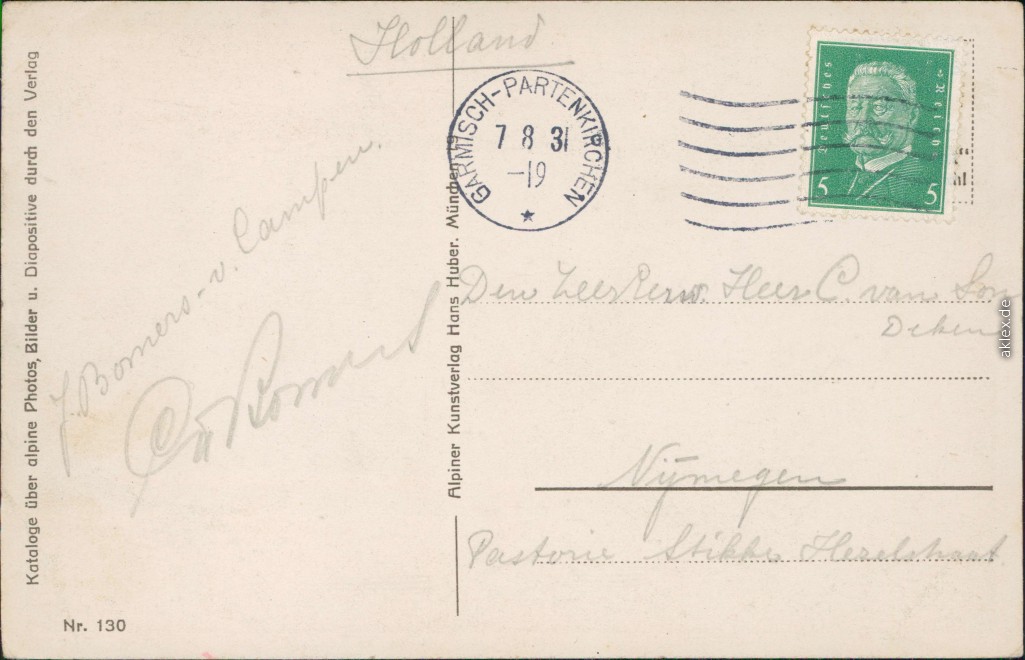 Holland
GARMISCH-PARTENKIRCHEN
7 8 31
-19
Deutsches Reich
5 5
Kataloge über alpine Photos, Bilder u. Diapositive durch den Verlag
J. Bomers - v. Campen.
Alpiner Kunstverlag Hans Huber. München 19
Den Zeer Eerw. Heer C. van Son
Deken
Nijmegen
Pastorie Stikke Hezelstraat
Nr. 130
aklex.de